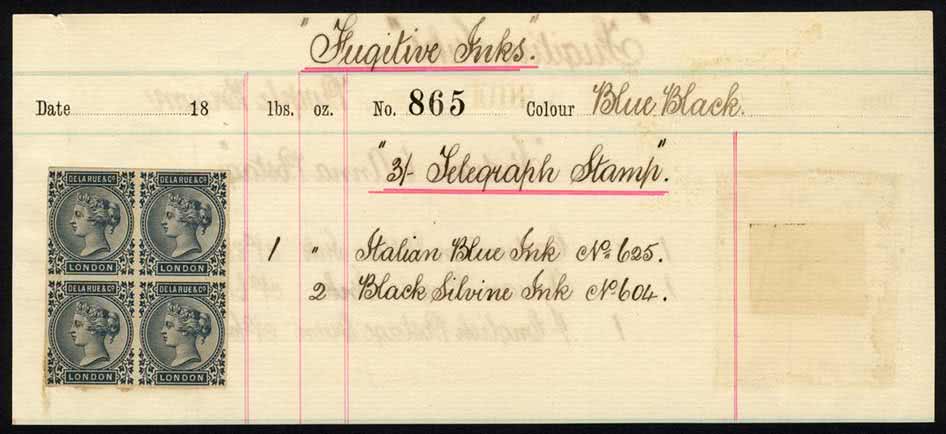 "Fugitive Inks".
Date 18 lbs. oz. No. 865 Colour Blue Black.
"3/- Telegraph Stamp".
DE LA RUE & Co. DE LA RUE & Co.
LONDON LONDON
DE LA RUE & Co. DE LA RUE & Co.
LONDON LONDON
1 " Italian Blue Ink No. 625.
2 Black Silvine Ink No. 604.